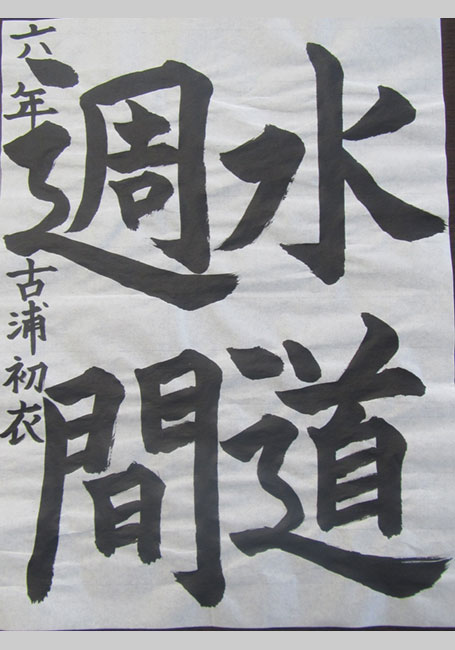 水道
週間
六年 古浦初衣